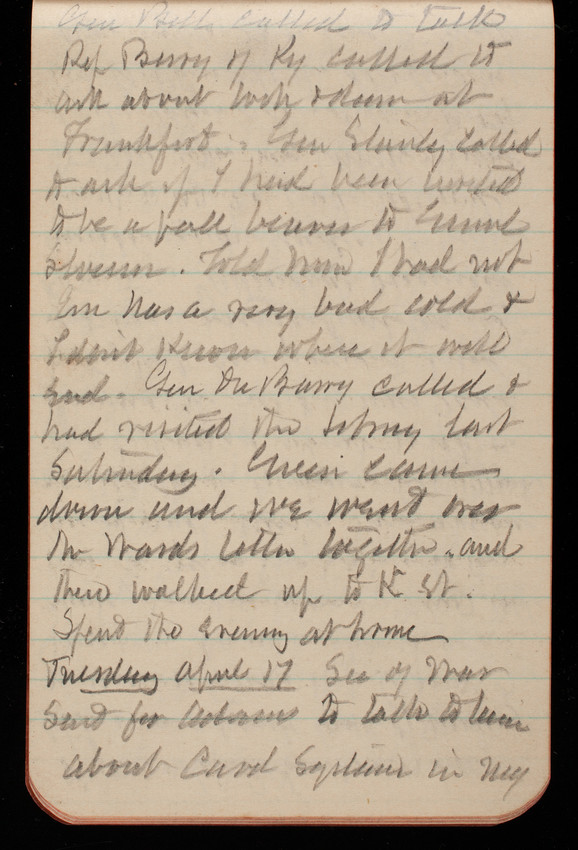 Gen Bell called to talk
Rep Berry of Ky called to
ask about lock & dam at
Frankfort. Gen called
to ask if I had been invited
to be a pall bearer to
. Told him I had not
has a very bad cold &
I don't know where it will
end. Gen Du Barry called &
had visited the library last
Saturday. came
down and we went over
the Wards letter together and
then walked up to K St.
Spent the evening at home
Tuesday April 17 Sec of War
Send for to talk to him
about Card System in my